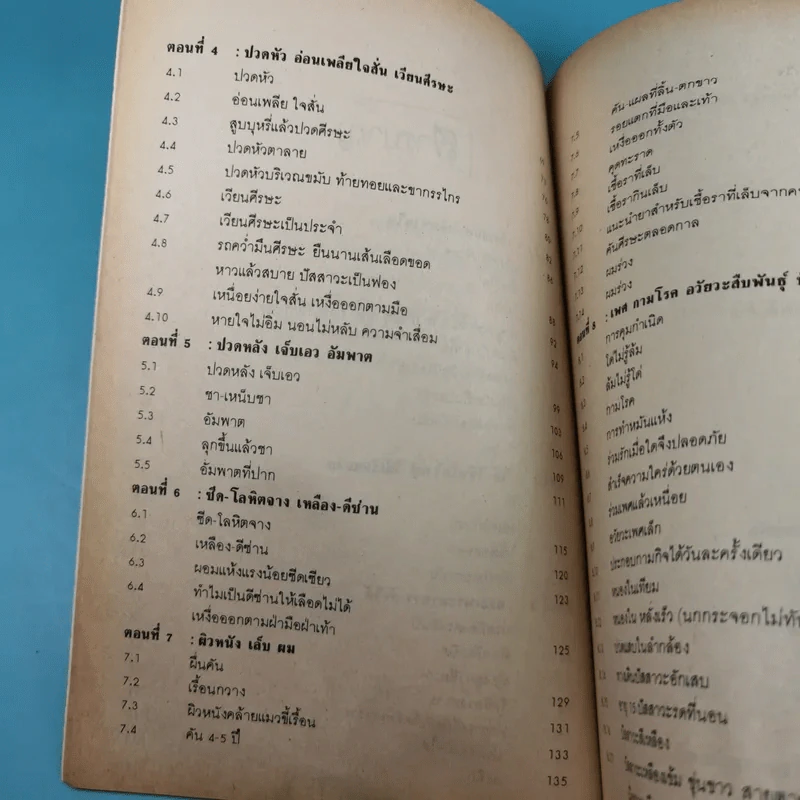 ตอนที่ 4 : ปวดหัว อ่อนเพลียใจสั่น เวียนศีรษะ
4.1 ปวดหัว
4.2 อ่อนเพลีย ใจสั่น
4.3 สูบบุหรี่แล้วปวดศีรษะ
4.4 ปวดหัวตาลาย
4.5 ปวดหัวบริเวณขมับ ท้ายทอยและขากรรไกร
4.6 เวียนศีรษะ
4.7 เวียนศีรษะเป็นประจำ
4.8 รถคว่ำมึนศีรษะ ยืนนานเส้นเลือดขอด
หาวแล้วสบาย ปัสสาวะเป็นฟอง
4.9 เหนื่อยง่ายใจสั่น เหงื่อออกตามมือ
4.10 หายใจไม่อิ่ม นอนไม่หลับ ความจำเสื่อม
ตอนที่ 5 : ปวดหลัง เจ็บเอว อัมพาต
5.1 ปวดหลัง เจ็บเอว 99
5.2 ชา-เหน็บชา 103
5.3 อัมพาต 106
5.4 ลุกขึ้นแล้วชา 109
5.5 อัมพาตที่ปาก 111
ตอนที่ 6 : ซีด-โลหิตจาง เหลือง-ดีซ่าน
6.1 ซีด-โลหิตจาง 115
6.2 เหลือง-ดีซ่าน 120
6.3 ผอมแห้งแรงน้อยซีดเซียว 123
6.4 ทำไมเป็นดีซ่านให้เลือดไม่ได้
เหงื่อออกตามฝ่ามือฝ่าเท้า 125
ตอนที่ 7 : ผิวหนัง เล็บ ผม
7.1 ผื่นคัน 129
7.2 เรื้อนกวาง 131
7.3 ผิวหนังคล้ายแมวขี้เรื้อน 133
7.4 คัน 4-5 ปี 135
คัน-แผลที่ลิ้น-ตกขาว
รอยแตกที่มือและเท้า
เหงื่อออกทั้งตัว
คุดทะราด
เชื้อราที่เล็บ
เชื้อรากินเล็บ
แนะนำยาสำหรับเชื้อราที่เล็บจาก
คันศีรษะตลอดกาล
ผมร่วง
ผมร่วง
ตอนที่ 8 : เพศ กามโรค อวัยวะสืบพันธุ์
การคุมกำเนิด
ใดไม่รู้ล้ม
ล้มไม่รู้ใด่
กามโรค
การทำหมันแห้ง
ร่วมรักเมื่อใดจึงปลอดภัย
สำเร็จความใคร่ด้วยตนเอง
ร่วมเพศแล้วเหนื่อย
อวัยวะเพศเล็ก
ประกอบกามกิจได้วันละครั้งเดียว
หนองในเทียม
หนองใน หลั่งเร็ว (นกกระจอกไม่ทัน
อักเสบ
ปัสสาวะรดที่นอน